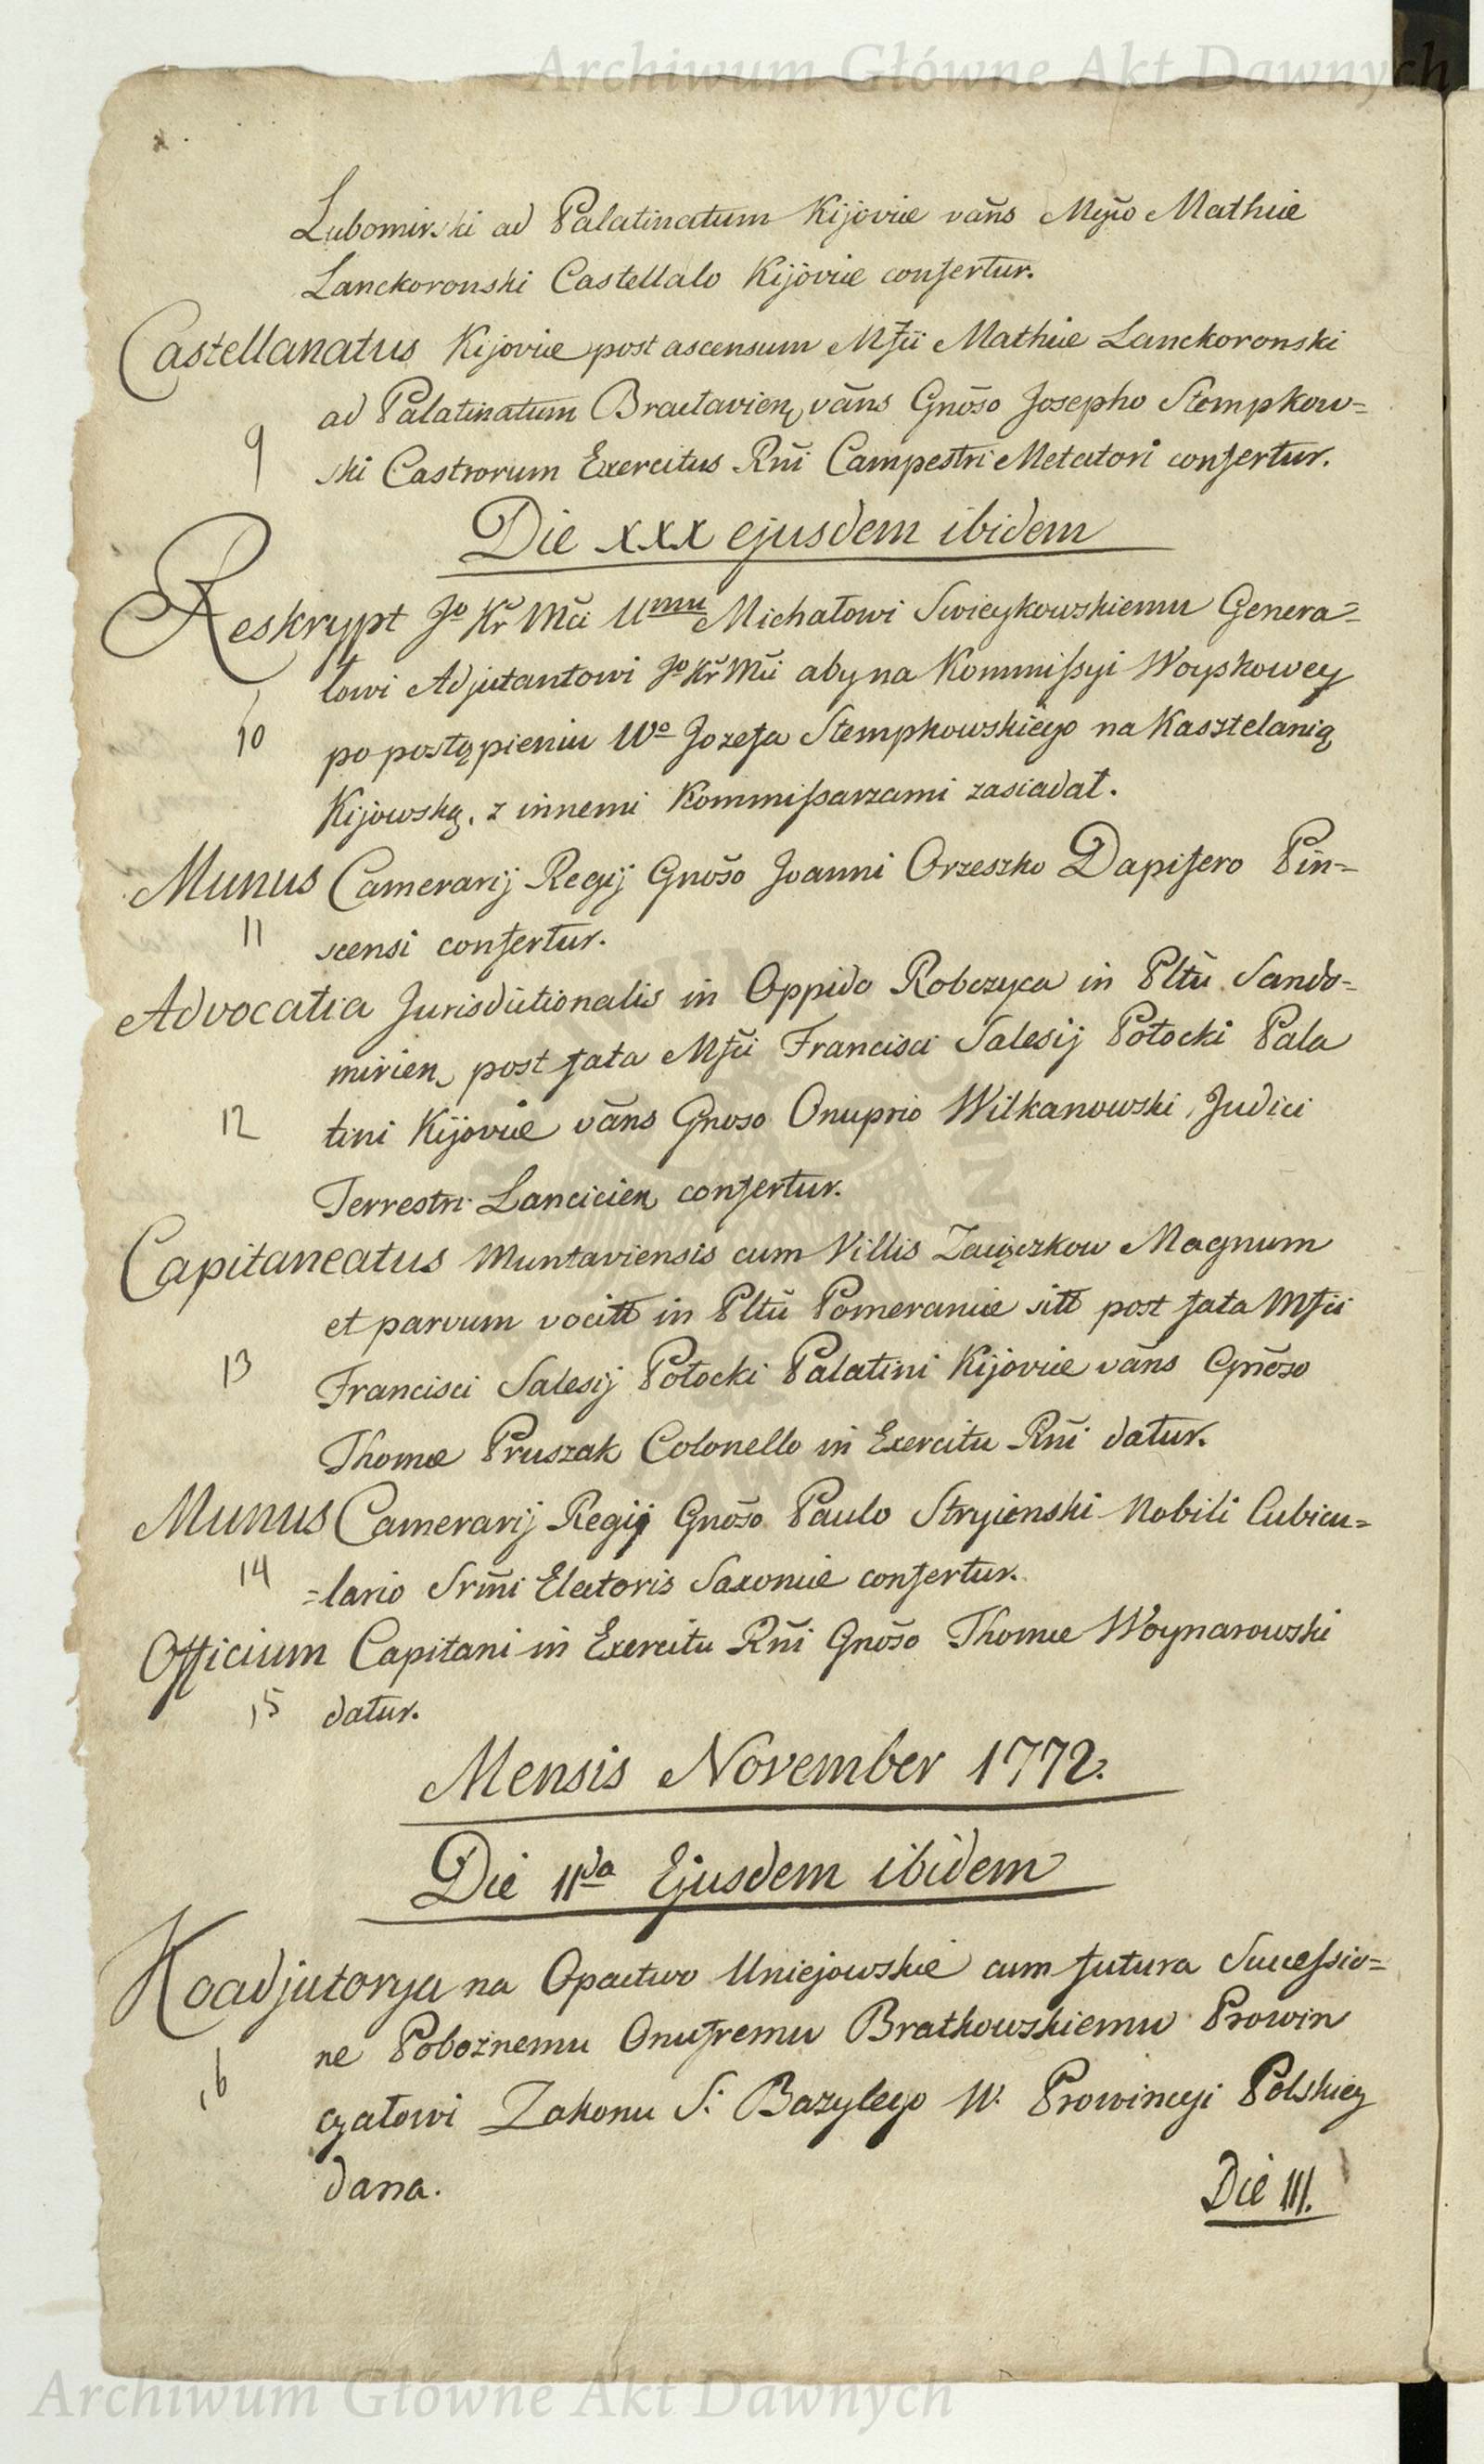 Archiwum Główne Akt Dawnych
Lubomirski ad Palatinatum Kijoviæ vāns Mgño Mathiæ
Lanckoronski Castellalo Kijoviæ confertur.
Castellanatus Kijoviæ post ascensum Mfii Mathiæ Lanckoronski
ad Palatinatum Braclavien, vāns Gnōso Josepho Stempkow=
9 ski Castrorum Exercitus Rñi Campestri Metatori confertur.
Die xxx ejusdem ibidem
Reskrypt Jº Kr Mci Umu Michałowi Swieykowskiemu Genera=
łowi Adjutantowi Jº Kr Mci aby na Kommissyi Woyskowey
10 po postąpieniu Wº Jozefa Stempkowskiego na Kasztelanią
Kijowską, z innemi Kommissarzami zasiadał.
Munus Camerarij Regij Gnōso Joanni Orzeszko Dapifero Pin=
11 scensi confertur.
Advocatia Jurisdictionalis in Oppido Robczyca in Pltũ Sando=
mirien, post fata Mfci Francisci Salesij Potocki Pala
12 tini Kijoviæ vāns Gnoso Onuprio Wilkanowski, Judici
Terrestri Lancicien, confertur.
Capitaneatus Muntaviensis cum Villis Zaiączkow Magnum
et parvum vocitt in Pltũ Pomeraniæ sitt post fata Mfci
13 Francisci Salesij Potocki Palatini Kijoviæ vāns Gnōso
Thomæ Pruszak Colonello in Exercitu Rñi datur.
Munus Camerarij Regij Gnōso Paulo Stryienski Nobili Cubicu=
14 =lario Srm̃i Electoris Saxoniæ confertur.
Officium Capitani in Exercitu Rñi Gnōso Thomæ Woynarowski
15 datur.
Mensis November 1772.
Die IIda Ejusdem ibidem
Koadjutorya na Opactwo Uniejowskie cum futura Successio=
ne Pobożnemu Onufremu Bratkowskiemu Prowin
16 cyałowi Zakonu S: Bazylego W. Prowincyi Polskiey
dana.
Die III.
Archiwum Główne Akt Dawnych